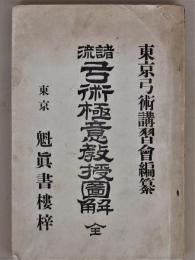 東京弓術講習會編纂
諸流
弓術極意教授圖解
全
東京 魁真書樓梓